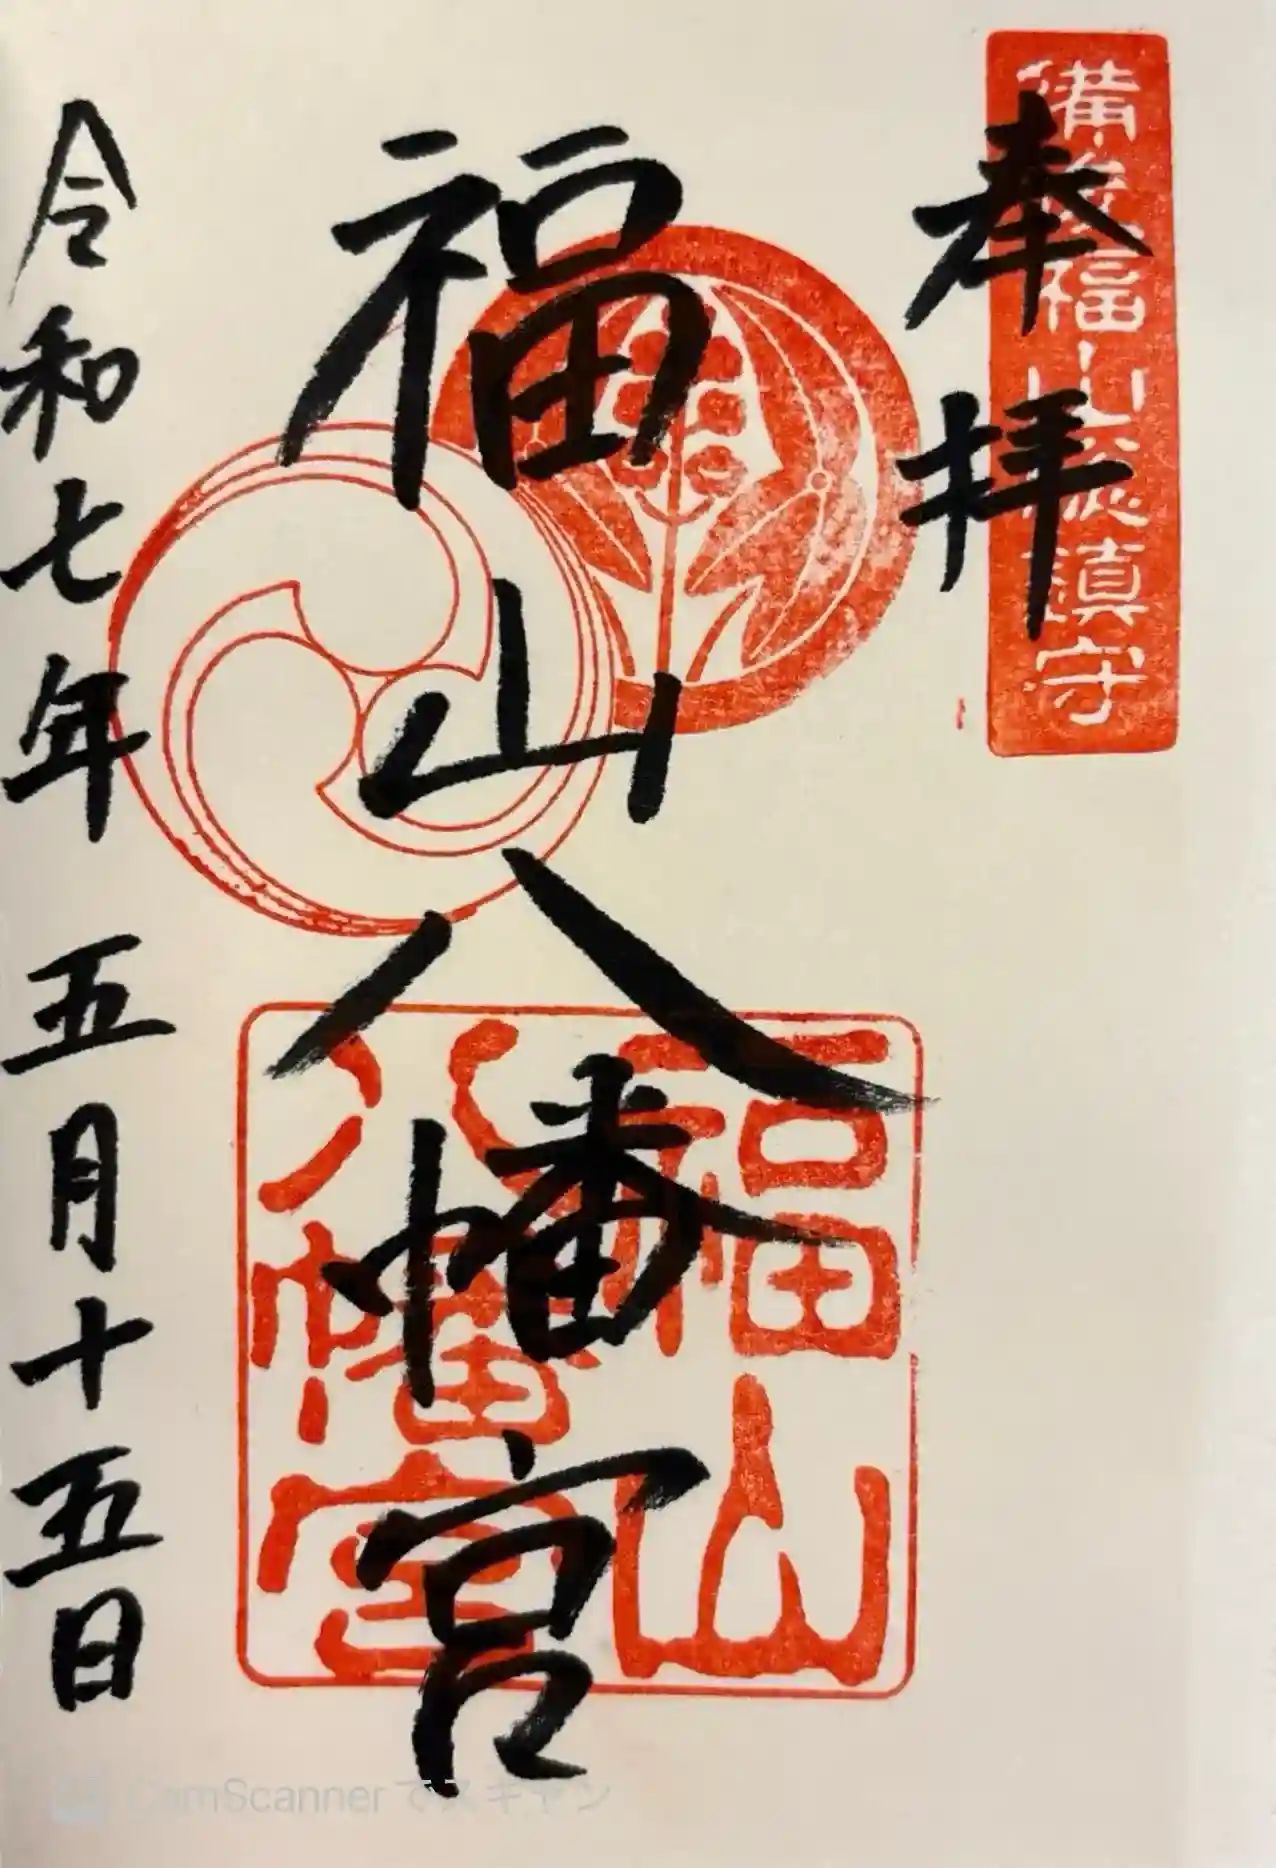 備後福山総鎮守
奉拝
福山八幡宮
福山
八幡宮
令和七年 五月十五日
CamScanner でスキャン